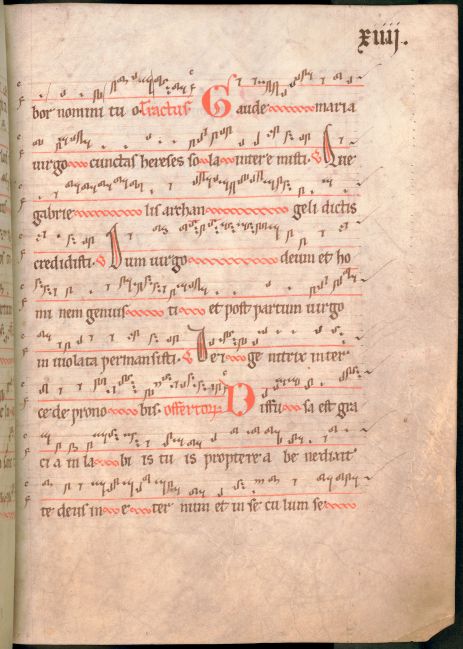 xiiij.
bor nomini tu o Tractus Gaude maria
uirgo cunctas hereses so la inter e misti. V Aue
gabrie lis archan geli dictis
credidisti. V Dum uirgo deum et ho
mi nem genuis ti et post partum uirgo
in uiolata permansisti. V Dei ge nitrix inter
ce de pro no bis. offertor Diffu sa est gra
ci a in la bi is tu is propter e a be nedixit
te deus in e ter num et in se cu lum se